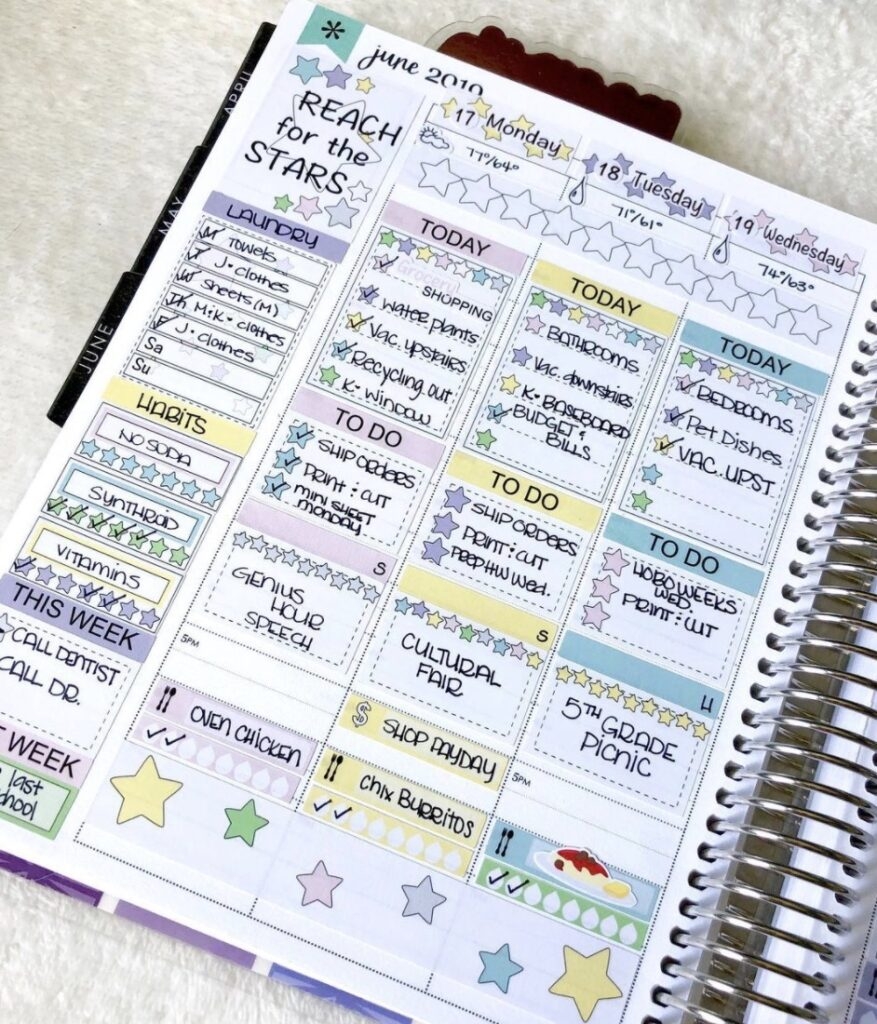 APRIL
MAY
JUNE
*
june 2019
REACH
for the
STARS
LAUNDRY
M Towels
T J• clothes
W Sheets (M)
Th M•K• clothes
F J• clothes
Sa
Su
HABITS
NO SODA
SYNTHROID
VITAMINS
THIS WEEK
CALL DENTIST
CALL DR.
T WEEK
last
chool
17 Monday
77°/64°
TODAY
Grocery!
SHOPPING
WATER PLANTS
VAC. UPSTAIRS
RECYCLING OUT
K• WINDOW
TO DO
SHIP ORDERS
PRINT : CUT
MINI SHEET
MONDAY
S
GENIUS
HOUR
SPEECH
5PM
OVEN CHICKEN
18 Tuesday
71°/61°
TODAY
BATHROOMS
VAC. downstairs
K• BASEBOARD
BUDGET :
BILLS
TO DO
SHIP ORDERS
PRINT : CUT
PREP HW Wed.
S
CULTURAL
FAIR
$ SHOP PAYDAY
CHIX BURRITOS
19 Wednesday
74°/63°
TODAY
BEDROOMS
Pet Dishes
VAC. UPST
TO DO
HOBO WEEKS
WED.
PRINT : CUT
5TH GRADE
PICNIC
5PM